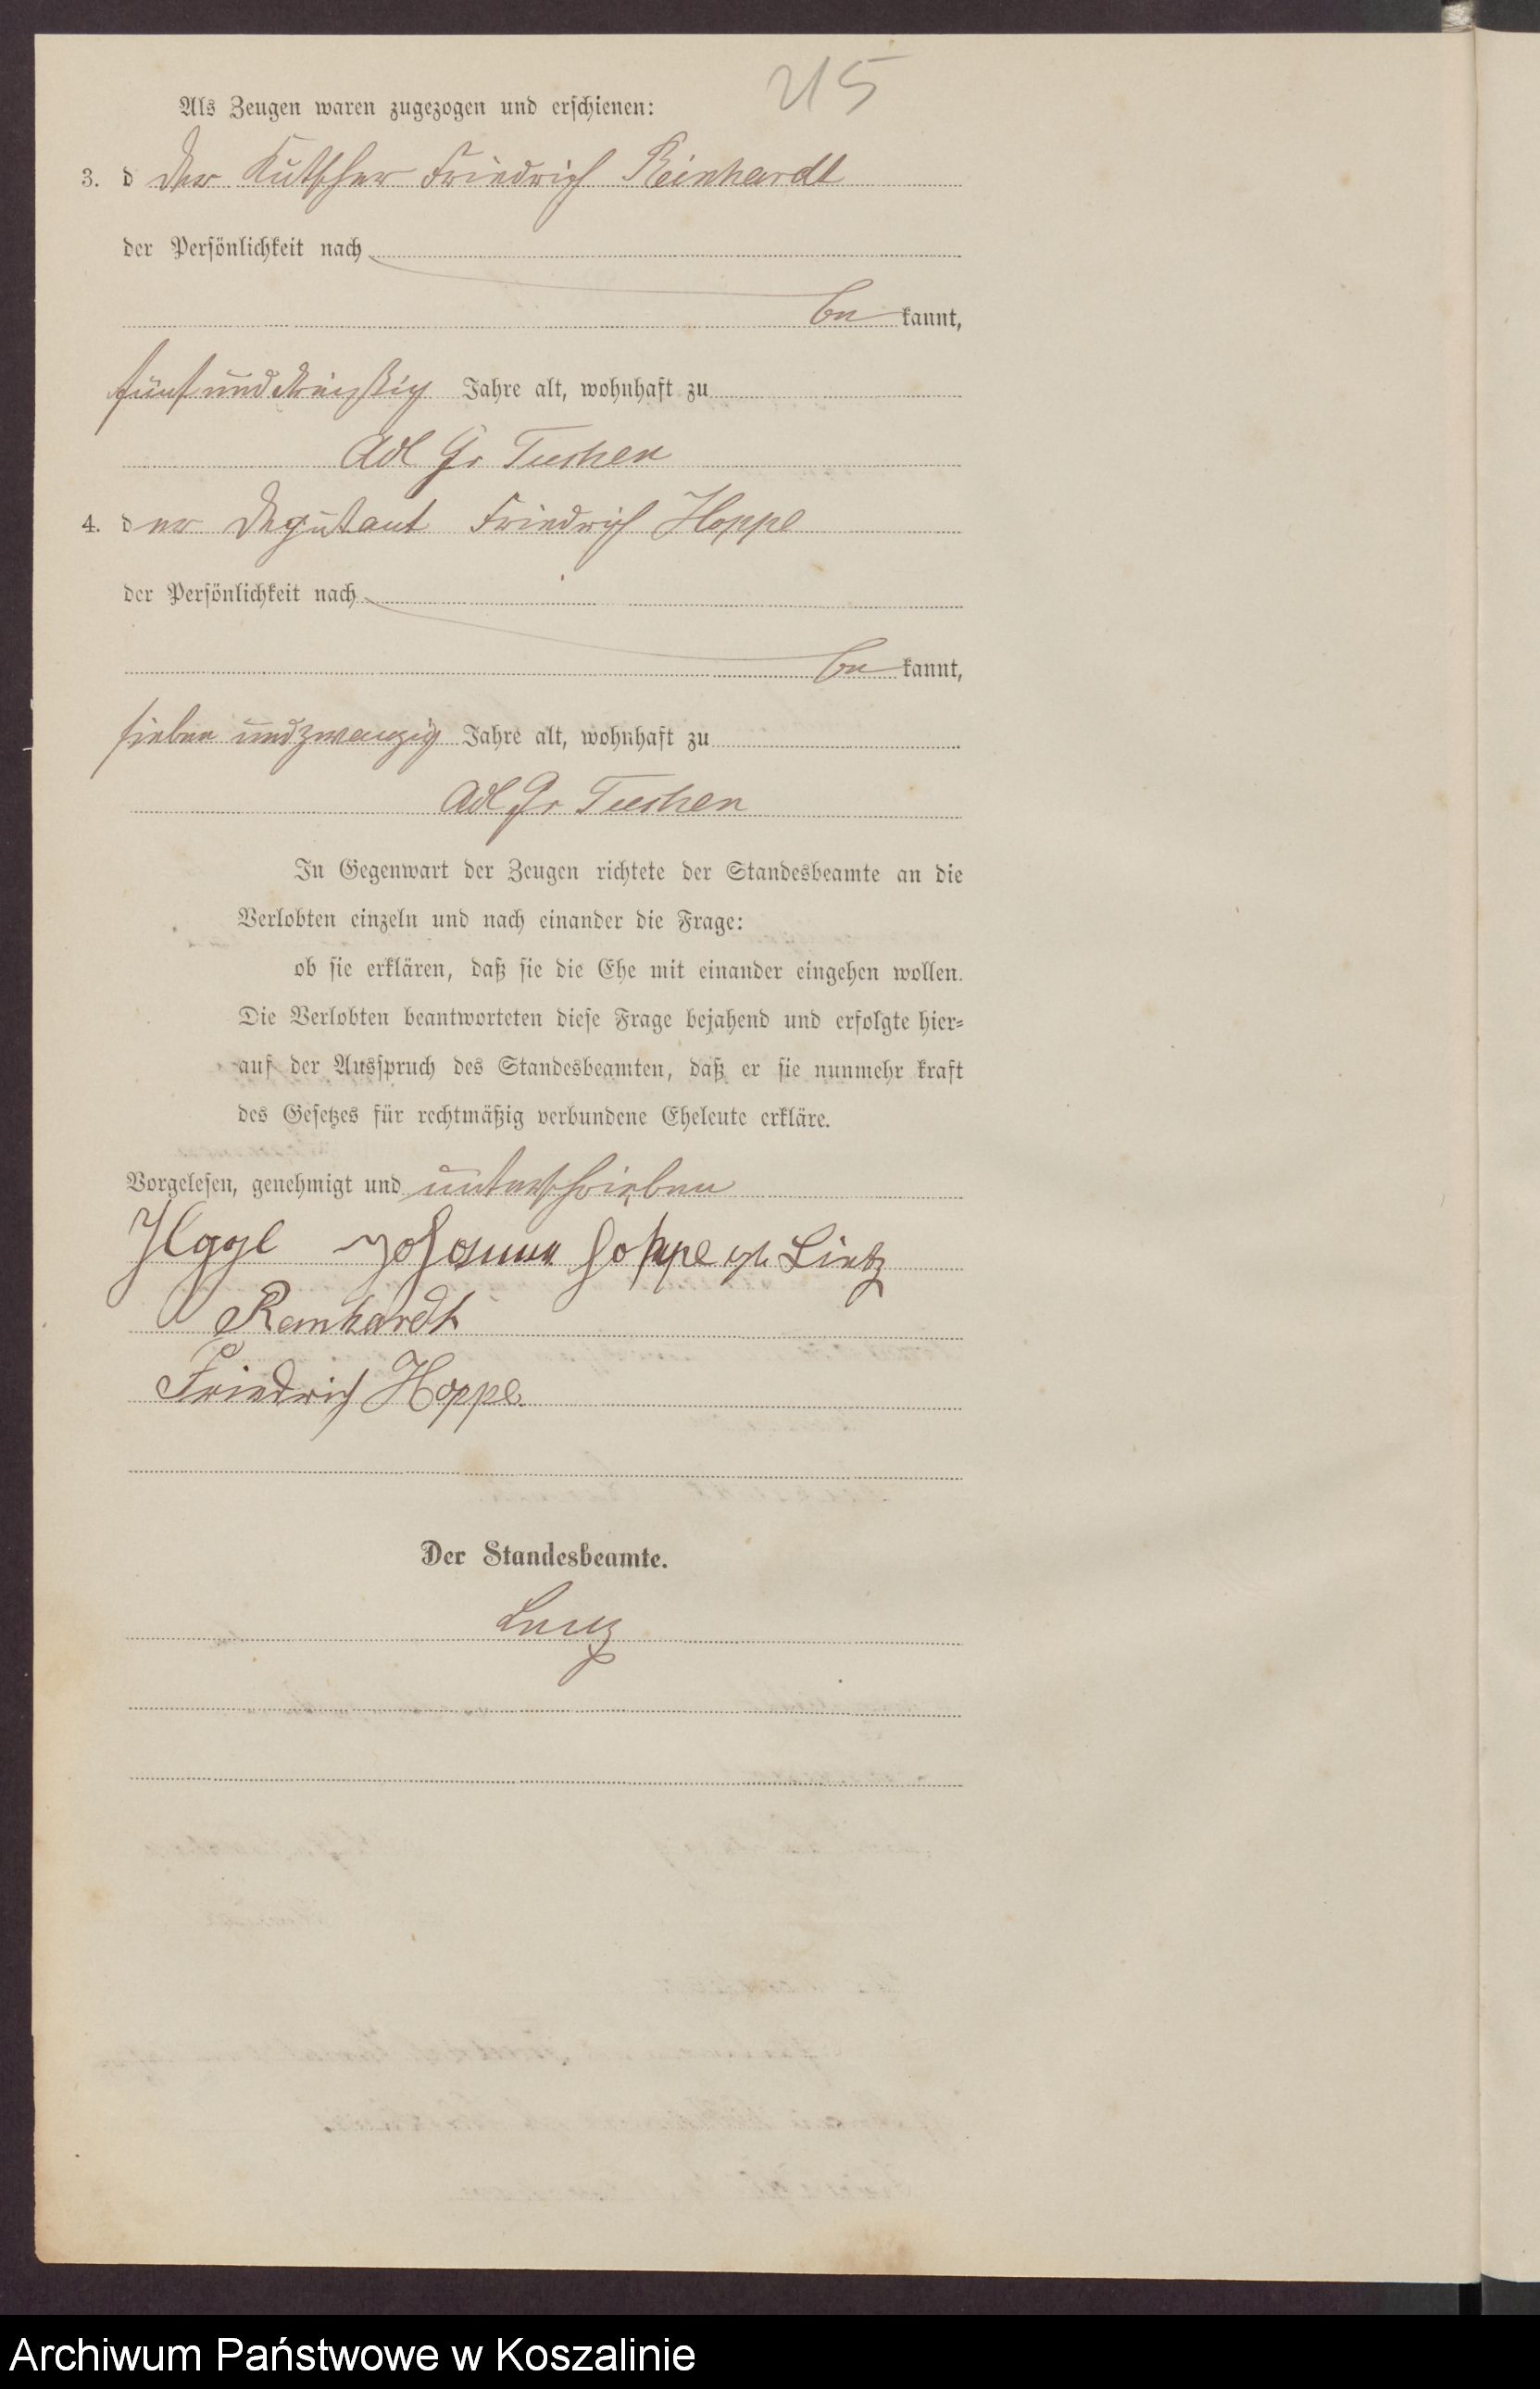 215
Als Zeugen waren zugezogen und erschienen:
3. d Der Kutscher Friedrich Reinhardt
der Persönlichkeit nach
be kannt,
fünfunddreißig Jahre alt, wohnhaft zu
Adl Gr Tuchen
4. d er Deputant Friedrich Hoppe
der Persönlichkeit nach
be kannt,
sieben undzwanzig Jahre alt, wohnhaft zu
Adl Gr Tuchen
In Gegenwart der Zeugen richtete der Standesbeamte an die
Verlobten einzeln und nach einander die Frage:
ob sie erklären, daß sie die Ehe mit einander eingehen wollen.
Die Verlobten beantworteten diese Frage bejahend und erfolgte hier-
auf der Ausspruch des Standesbeamten, daß er sie nunmehr kraft
des Gesetzes für rechtmäßig verbundene Eheleute erkläre.
Vorgelesen, genehmigt und unterschrieben
Johanna Hoppe
Reinhardt
Friedrich Hoppe.
Der Standesbeamte.
Archiwum Państwowe w Koszalinie